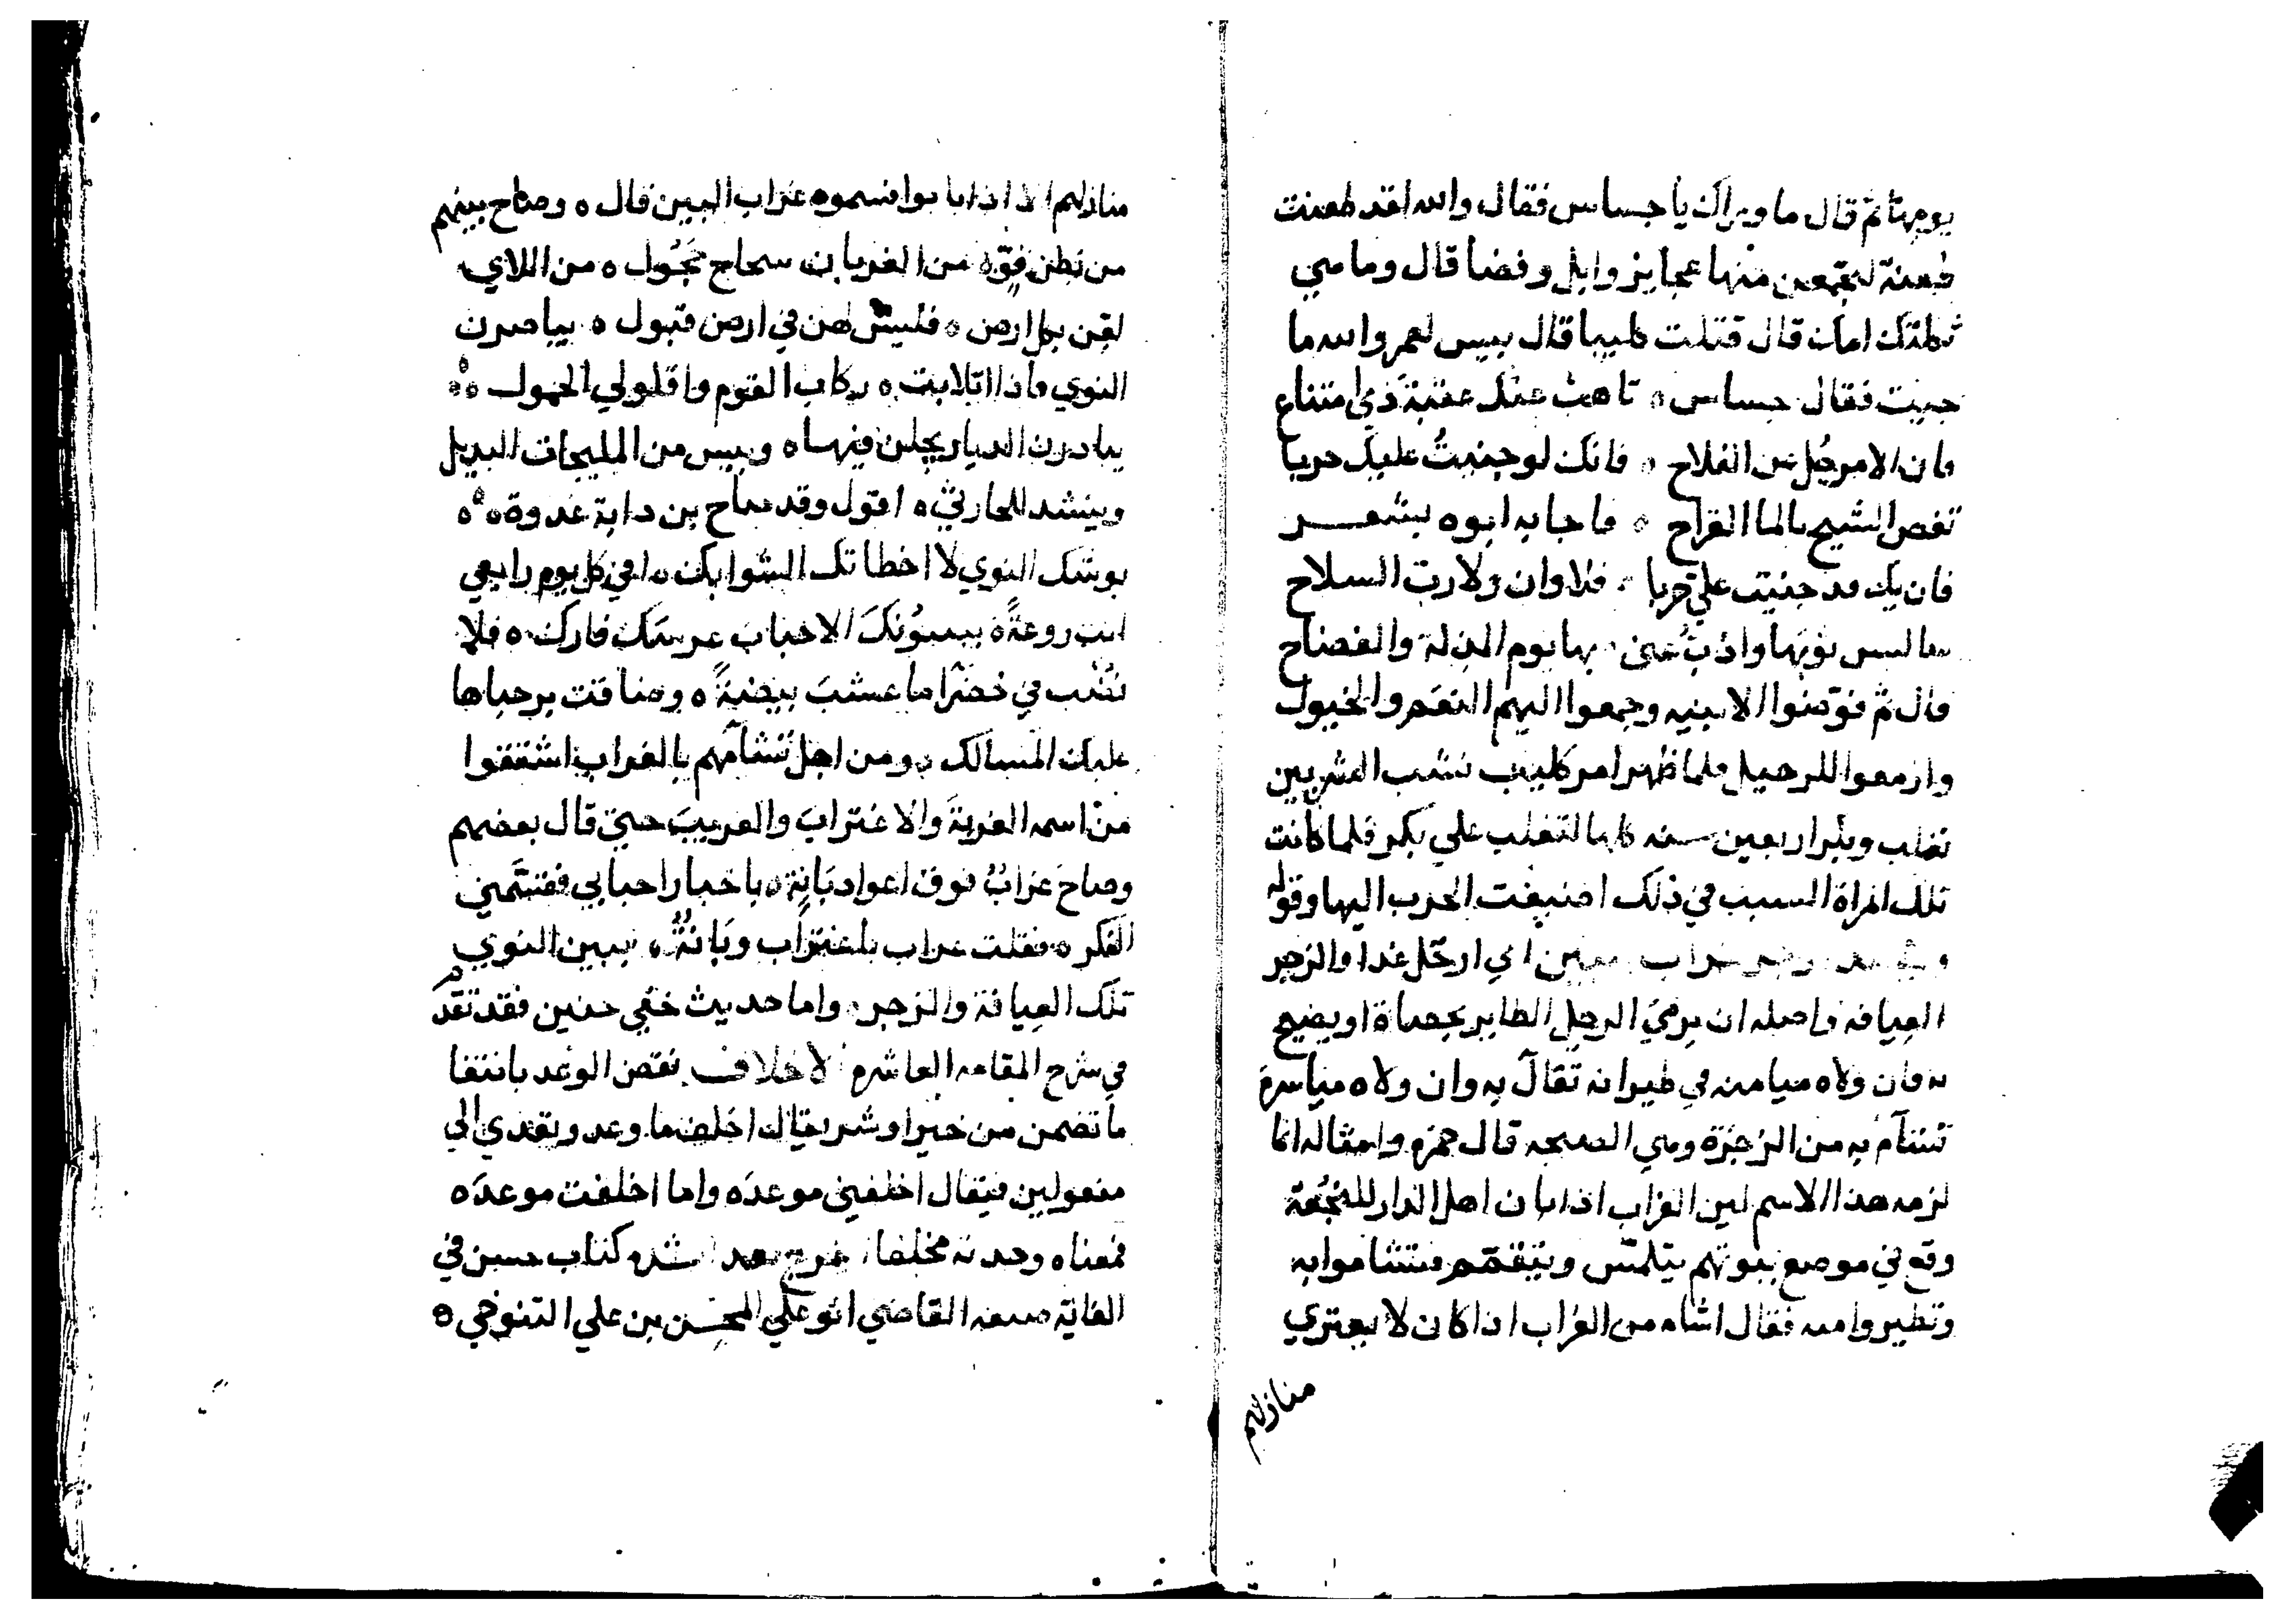 يومها ثم قال ما وراك يا جساس فقال والله لقد طعنت
طعنة لتجمعن منها عجايز وايل وفضا قال وما هي
ثكلتك امك قال قتلت كليبا قال بيس لعمر والله ما
جنيت فقال جساس ه تاهب عنك عقبة ذي امتناع
فان الامر جل عن الفلاح ه فانك لو جنيت عليك حربا
تغص الشيخ بالما القراح ه فاجابه ابوه بشعر
فان يك قد جنيت علي حربا فلا وان ولا رث السلاح
سالبس ثوبها واذب عني بها يوم المذلة والفضاح
قال ثم قوضوا الابنيه وجمعوا اليهم النعم والخيول
وازمعوا للرحيل فلما ظهر امر كليب نشب الشر بين
تغلب وبكر اربعين سنه كلها لتغلب علي بكر فلما كانت
تلك المراة السبب في ذلك اضيفت الحرب اليها وقوله
غراب البين اي ارحل غدا والزجر
العيافه واصله ان يرمي الرجل الطاير بحصاة او يصيح
به فان ولاه ميامنه في طيرانه تفال به وان ولاه مياسره
تشام به من الزجرة وهي الصيحه قال حمزه وامثاله انما
لزمه هذا الاسم لين الغراب اذا بان اهل الدار للنجعة
وقع في موضع بيوتهم يتلمس ويتقمم فتشاموا به
وتطيروا منه فقال اشام من الغراب اذا كان لا يعتري
منازلهم
منازلهم الا اذا بانوا فسموه غراب البين قال ه وصاح ببينهم
من بطن قو ه من الغربان سحاج حجول ه من اللاي
لعن بكل ارض ه فليس لهن في ارض قبول ه يباصرن
النوي فاذا اتلابت ه ركاب القوم واقلولي الحمول ه
يبادرن الديار يجلن فيها ه وبيس من المليحات البديل
وينشد للحارثي ه اقول وقد صاح بن داية غدوة ه
بوشك النوي لا اخطاتك الشوابك ه افي كل يوم رايعي
انت روعة ه ببينونك الاحباب عرسك فارك ه فلا
بضت في خضرا ما عشت بيضة ه وضاقت برحباها
عليك المسالك ه ومن اجل تشامهم بالغراب اشتقوا
من اسمه الغربة والاغتراب والغريب حتي قال بعضهم
وصاح غراب فوق اعواد بانة ه باخبار احبابي فقسمني
الفكر ه فقلت غراب باغتراب وبانة ه ببين النوي
تلك العيافة والزجر ه واما حديث خفي حنين فقد تقدم
في شرح المقامه العاشره لاخلاف نقض الوعد بانتفا
ما تضمن من خير او شر يقال اخلف ما وعد وتعدي الي
مفعولين فيقال اخلفني موعده واما اخلفت موعده
فمعناه وجدته مخلفا فرج بعد الشده كتاب حسن في
الغاية صنفه القاضي ابو علي المحسن بن علي التنوخي ه